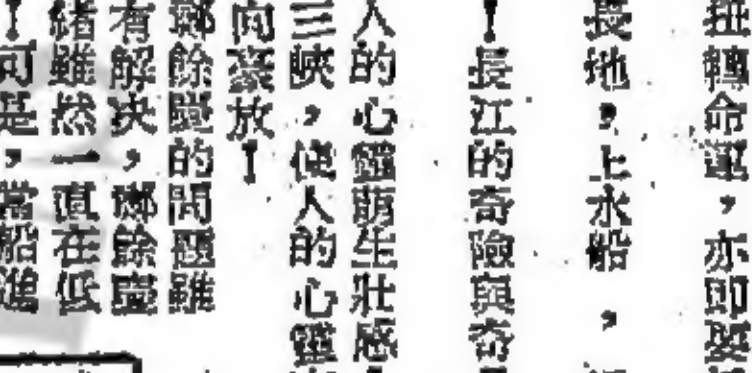 扭轉命運，亦即要
長地，上水船，
！長江的奇險與奇
人的心靈萌生壯感
三峽，使人的心靈
向豪放！
鄭餘慶的問題雖
有解決，鄭餘慶
緒雖然一直在低
！可是，當船進